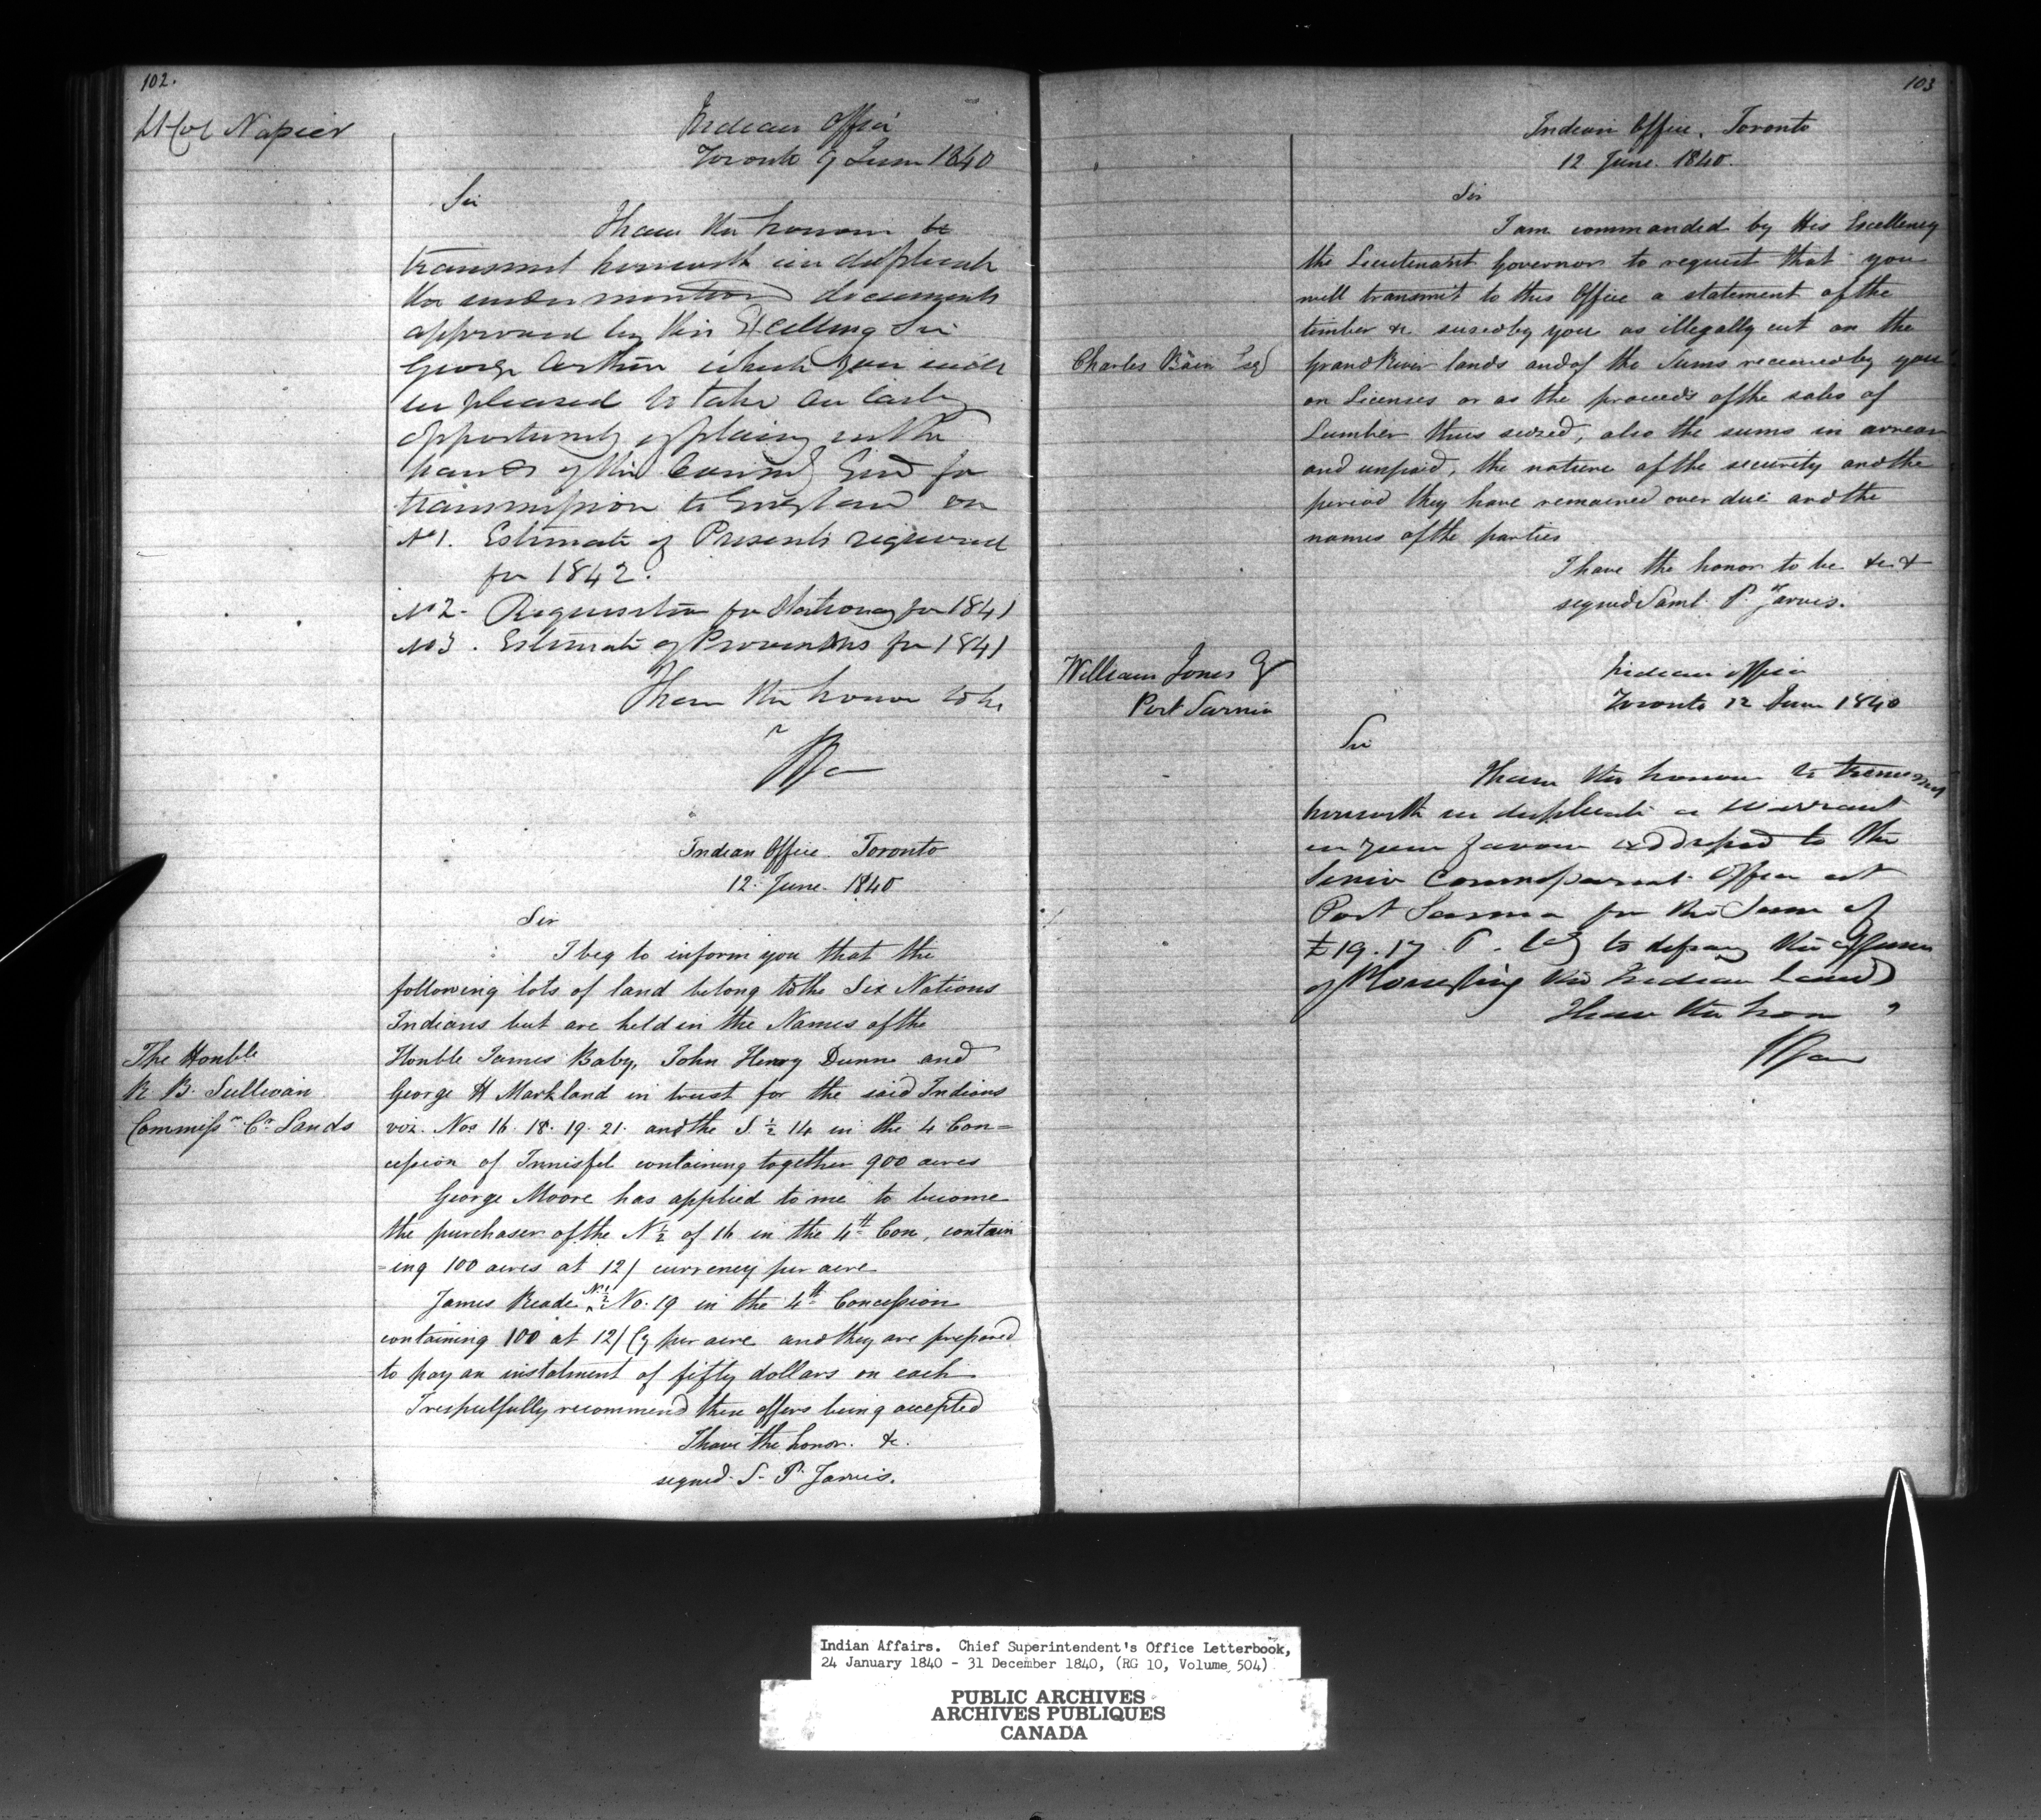 102.
Lt Col Napier
Indian Office
Toronto 9 June 1840
Sir
I have the honour to
transmit herewith in duplicate
the undermentioned documents
approved by His Excellency Sir
George Arthur which you will
be pleased to take an early
opportunity of placing in the
hands of the for
transmission to England on
No 1. Estimate of Presents required
for 1842.
No 2. Requisition for Stationery for 1841
No 3. Estimate of Provisions for 1841
I have the honor to be
Indian Office. Toronto
12 June 1840
Sir
I beg to inform you that the
following lots of land belong to the Six Nations
Indians but are held in the Names of the
The Honble
R. B. Sullivan
Commissr Cn Lands
Honble James Baby, John Henry Dunn and
George H Markland in trust for the said Indians
viz. Nos 16. 18. 19. 21. and the S. ½ 14 in the 4 Con=
cession of Innisfil containing together 900 acres
George Moore has applied to me to become
the purchaser of the N ½ of 16 in the 4th Con, contain
=ing 100 acres at 12/ currency per acre
James Reade N ½ No. 19 in the 4th Concession
containing 100 at 12/ Cy per acre and they are prepared
to pay an instalment of fifty dollars on each
I respectfully recommend these offers being accepted
I have the honor. &c.
signed. S. P. Jarvis.
103
Indian Office, Toronto
12 June. 1840.
Sir
I am commanded by His Excellency
the Lieutenant Governor to request that you
will transmit to this Office a statement of the
timber &c. seized by you as illegally cut on the
Charles Bain Esq
Grand River lands and of the Sums received by you
on Licenses or as the proceeds of the sales of
Lumber thus seized, also the sums in arrear
and unpaid, the nature of the security and the
period they have remained over due and the
names of the parties
I have the honor to be &c &
signed Saml. P. Jarvis.
William Jones
Port Sarnia
Indian Office
Toronto 12 June 1840
Sir
I have the honour to transmit
herewith in duplicate a Warrant
in your favour addressed to the
Senior Commissariat Officer at
Port Sarnia for the Sum of
£19. 17. to defray the expenses
of the Indian Lands
I have the hon
Indian Affairs. Chief Superintendent's Office Letterbook,
24 January 1840 - 31 December 1840, (RG 10, Volume 504)
PUBLIC ARCHIVES
ARCHIVES PUBLIQUES
CANADA